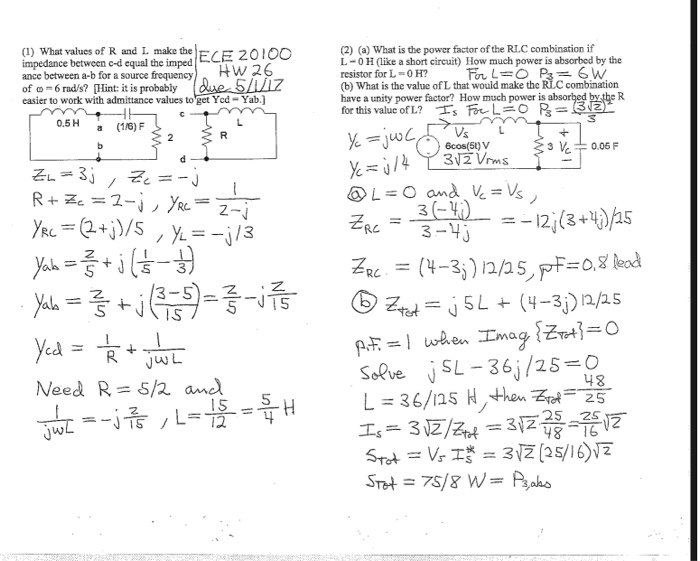 (1) What values of R and L make the
impedance between c-d equal the imped
ance between a-b for a source frequency
of ω = 6 rad/s? [Hint: it is probably
easier to work with admittance values to get Ycd = Yab.]
ECE 20100
HW 26
due 5/1/17
0.5 H
a
(1/6) F
b
2
c
d
R
L
Z_L = 3j , Z_c = -j
R + Z_c = 2-j , Y_RC = 1/(2-j)
Y_RC = (2+j)/5 , Y_L = -j/3
Yab = 2/5 + j(1/5 - 1/3)
Yab = 2/5 + j(3-5)/15) = 2/5 - j2/15
Ycd = 1/R + 1/jωL
Need R = 5/2 and
1/jωL = -j2/15 , L = 15/12 = 5/4 H
(2) (a) What is the power factor of the RLC combination if
L = 0 H (like a short circuit) How much power is absorbed by the
resistor for L = 0 H? For L=0 P3 = 6W
(b) What is the value of L that would make the RLC combination
have a unity power factor? How much power is absorbed by the R
for this value of L? Is For L=0 P3 = (3√2)²/3
Y_c = jωC
Y_c = j/4
Vs
6cos(5t) V
3√2 Vrms
L
3
+
Vc
−
0.05 F
ⓐ L=0 and Vc = Vs ,
Z_RC = 3(-4j)/(3-4j) = -12j(3+4j)/25
Z_RC = (4-3j)12/25, pf=0.8 lead
ⓑ Ztot = j5L + (4-3j)12/25
p.f. = 1 when Imag{Ztot}=0
Solve j5L - 36j/25 = 0
L = 36/125 H, then Ztot = 48/25
Is = 3√2/Ztot = 3√2 25/48 = 25/16 √2
Stot = Vs Is* = 3√2 (25/16)√2
Stot = 75/8 W = P3,abs